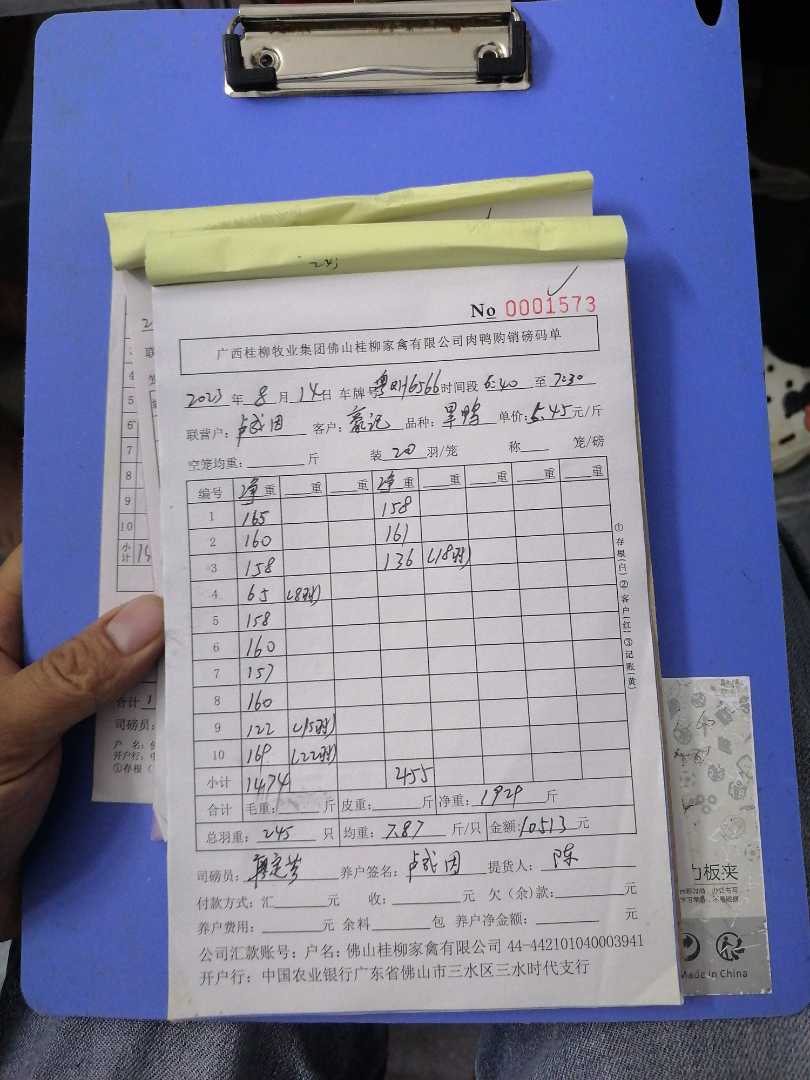 No 0001573
广西桂柳牧业集团佛山桂柳家禽有限公司肉鸭购销磅码单
2023 年 8 月 14 日 车牌号 粤 16566 时间段 6:40 至 7:30
联营户: 客户: 赢记 品种: 单价: 5.45 元/斤
空笼均重: 斤 装 20 羽/笼 称 笼/磅
编号 净重 重 重 净重 重 重 重 重
1 165 158
2 160 161
3 158 136 (18羽)
4 65 (8羽)
5 158
6 160
7 157
8 160
9 122 (15羽)
10 169 (22羽)
小计 1474 455
合计 毛重: 斤 皮重: 斤 净重: 1929 斤
总羽重: 245 只 均重: 7.87 斤/只 金额: 10513 元
司磅员: 养户签名: 提货人: 陈
付款方式: 汇 元 收: 元 欠(余)款: 元
养户费用: 元 余料 包 养户净金额: 元
公司汇款账号: 户名: 佛山桂柳家禽有限公司 44-442101040003941
开户行: 中国农业银行广东省佛山市三水区三水时代支行
①存根(白)②客户(红)③记账(黄)
4
5
6
7
8
9
10
小计
合计
司磅员:
户 名:
开户行:
①存根
板夹
Made in China